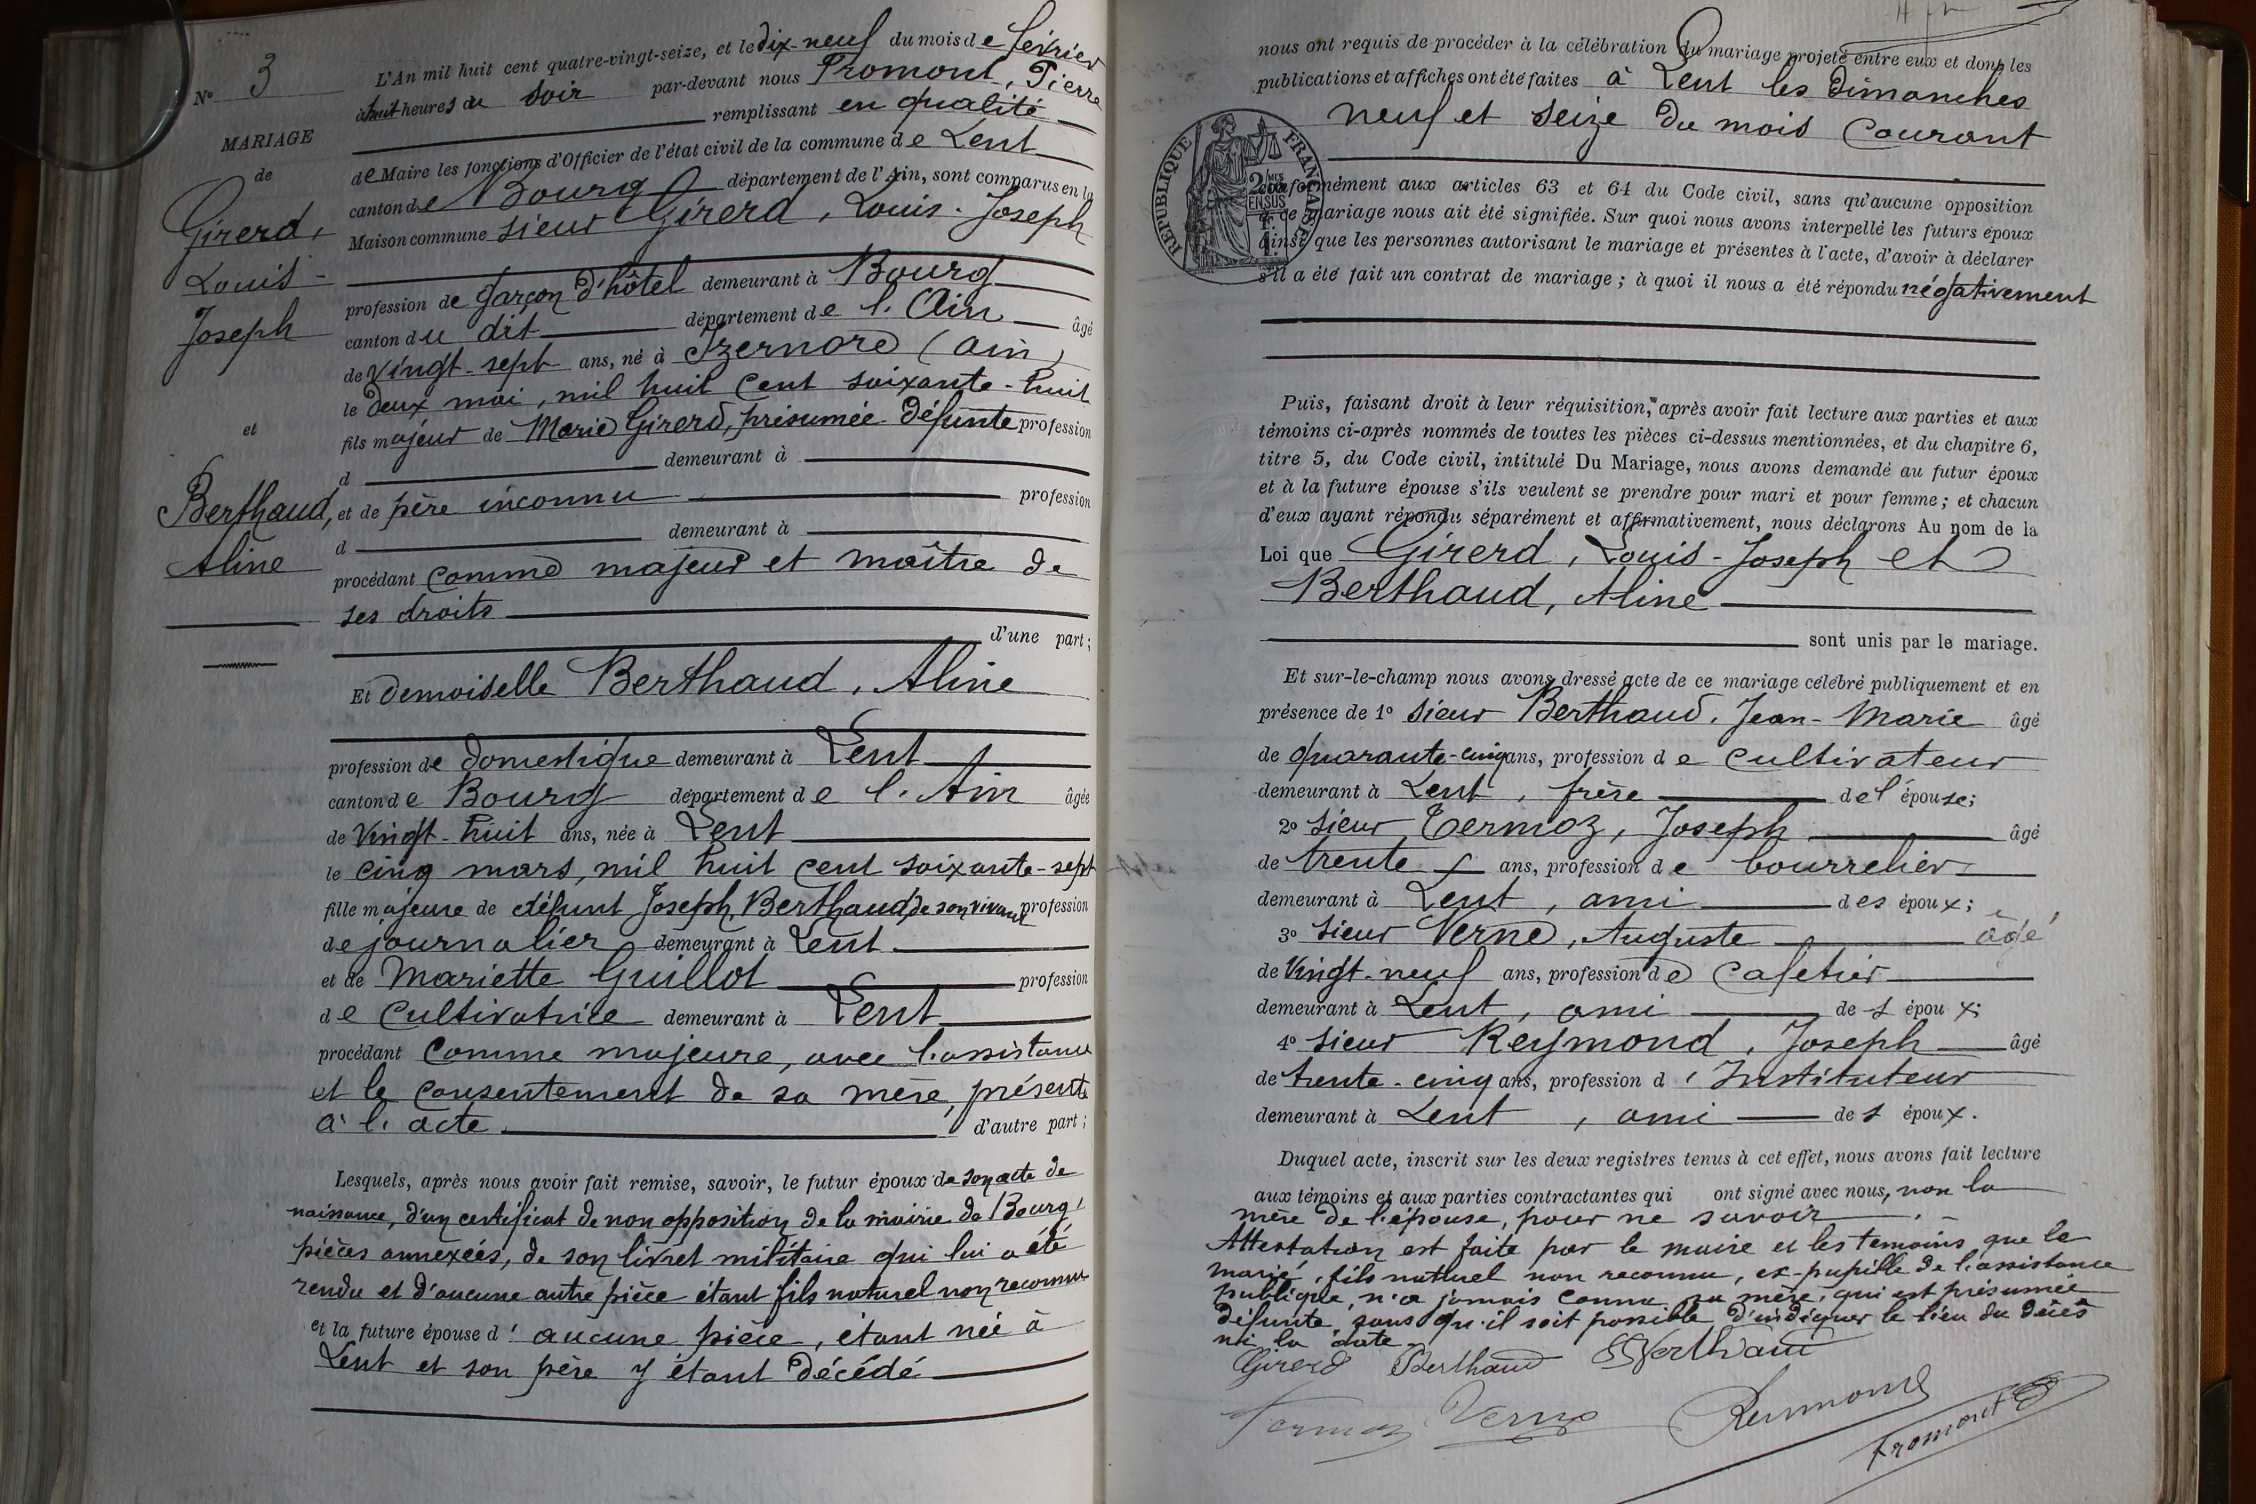 N° 3
MARIAGE
de
Girerd,
Louis-
Joseph
et
Berthaud,
Aline
L'An mil huit cent quatre-vingt-seize, et le dix-neuf du mois de février
à huit heures du soir par-devant nous Promont, Pierre
remplissant en qualité
de Maire les fonctions d'Officier de l'état civil de la commune de Lent
canton de Bourg département de l'Ain, sont comparus en la
Maison commune sieur Girerd, Louis-Joseph
profession de garçon d'hôtel demeurant à Bourg
canton du dit département de l'Ain âgé
de vingt-sept ans, né à Izernore (Ain)
le deux mai, mil huit cent soixante-huit
fils majeur de Marie Girerd, présumée défunte profession
d demeurant à
et de père inconnu profession
d demeurant à
procédant comme majeur et maître de
ses droits
d'une part;
Et demoiselle Berthaud, Aline
profession de domestique demeurant à Lent
canton de Bourg département de l'Ain âgée
de vingt-huit ans, née à Lent
le cinq mars, mil huit cent soixante-sept
fille majeure de défunt Joseph Berthaud, de son vivant profession
de journalier demeurant à Lent
et de Mariette Guillot profession
de cultivatrice demeurant à Lent
procédant comme majeure, avec l'assistance
et le consentement de sa mère, présente
à l'acte. d'autre part;
Lesquels, après nous avoir fait remise, savoir, le futur époux de son acte de
naissance, d'un certificat de non opposition de la mairie de Bourg,
pièces annexées, de son livret militaire qui lui a été
rendu et d'aucune autre pièce étant fils naturel non reconnu
et la future épouse d'aucune pièce, étant née à
Lent et son père y étant décédé
nous ont requis de procéder à la célébration du mariage projeté entre eux et dont les
publications et affiches ont été faites à Lent les dimanches
neuf et seize du mois courant
RÉPUBLIQUE FRANÇAISE
2 MES EN SUS
conformément aux articles 63 et 64 du Code civil, sans qu'aucune opposition
à ce mariage nous ait été signifiée. Sur quoi nous avons interpellé les futurs époux
ainsi que les personnes autorisant le mariage et présentes à l'acte, d'avoir à déclarer
s'il a été fait un contrat de mariage; à quoi il nous a été répondu négativement
Puis, faisant droit à leur réquisition, après avoir fait lecture aux parties et aux
témoins ci-après nommés de toutes les pièces ci-dessus mentionnées, et du chapitre 6,
titre 5, du Code civil, intitulé Du Mariage, nous avons demandé au futur époux
et à la future épouse s'ils veulent se prendre pour mari et pour femme; et chacun
d'eux ayant répondu séparément et affirmativement, nous déclarons Au nom de la
Loi que Girerd, Louis-Joseph et
Berthaud, Aline
sont unis par le mariage.
Et sur-le-champ nous avons dressé acte de ce mariage célébré publiquement et en
présence de 1° sieur Berthaud, Jean-Marie âgé
de quarante-cinq ans, profession de cultivateur
demeurant à Lent, frère de l'épouse;
2° sieur Termoz, Joseph âgé
de trente ans, profession de bourrelier
demeurant à Lent, ami des époux;
3° sieur Verne, Auguste âgé
de vingt-neuf ans, profession de cafetier
demeurant à Lent, ami des époux;
4° sieur Reymond, Joseph âgé
de trente-cinq ans, profession d'Instituteur
demeurant à Lent, ami des époux.
Duquel acte, inscrit sur les deux registres tenus à cet effet, nous avons fait lecture
aux témoins et aux parties contractantes qui ont signé avec nous, non la
mère de l'épouse, pour ne savoir.
Attestation est faite par le maire et les temoins que le
marié, fils natluel non reconnu, ex-pupille de l'assistance
publique, n'a jamais connu sa mère, qui est présumée
défunte, sans qu'il soit possible d'indiquer le lieu du décès
ni la date.
Girerd Berthaud Berthaud
Termoz Verne Reymond
Promont